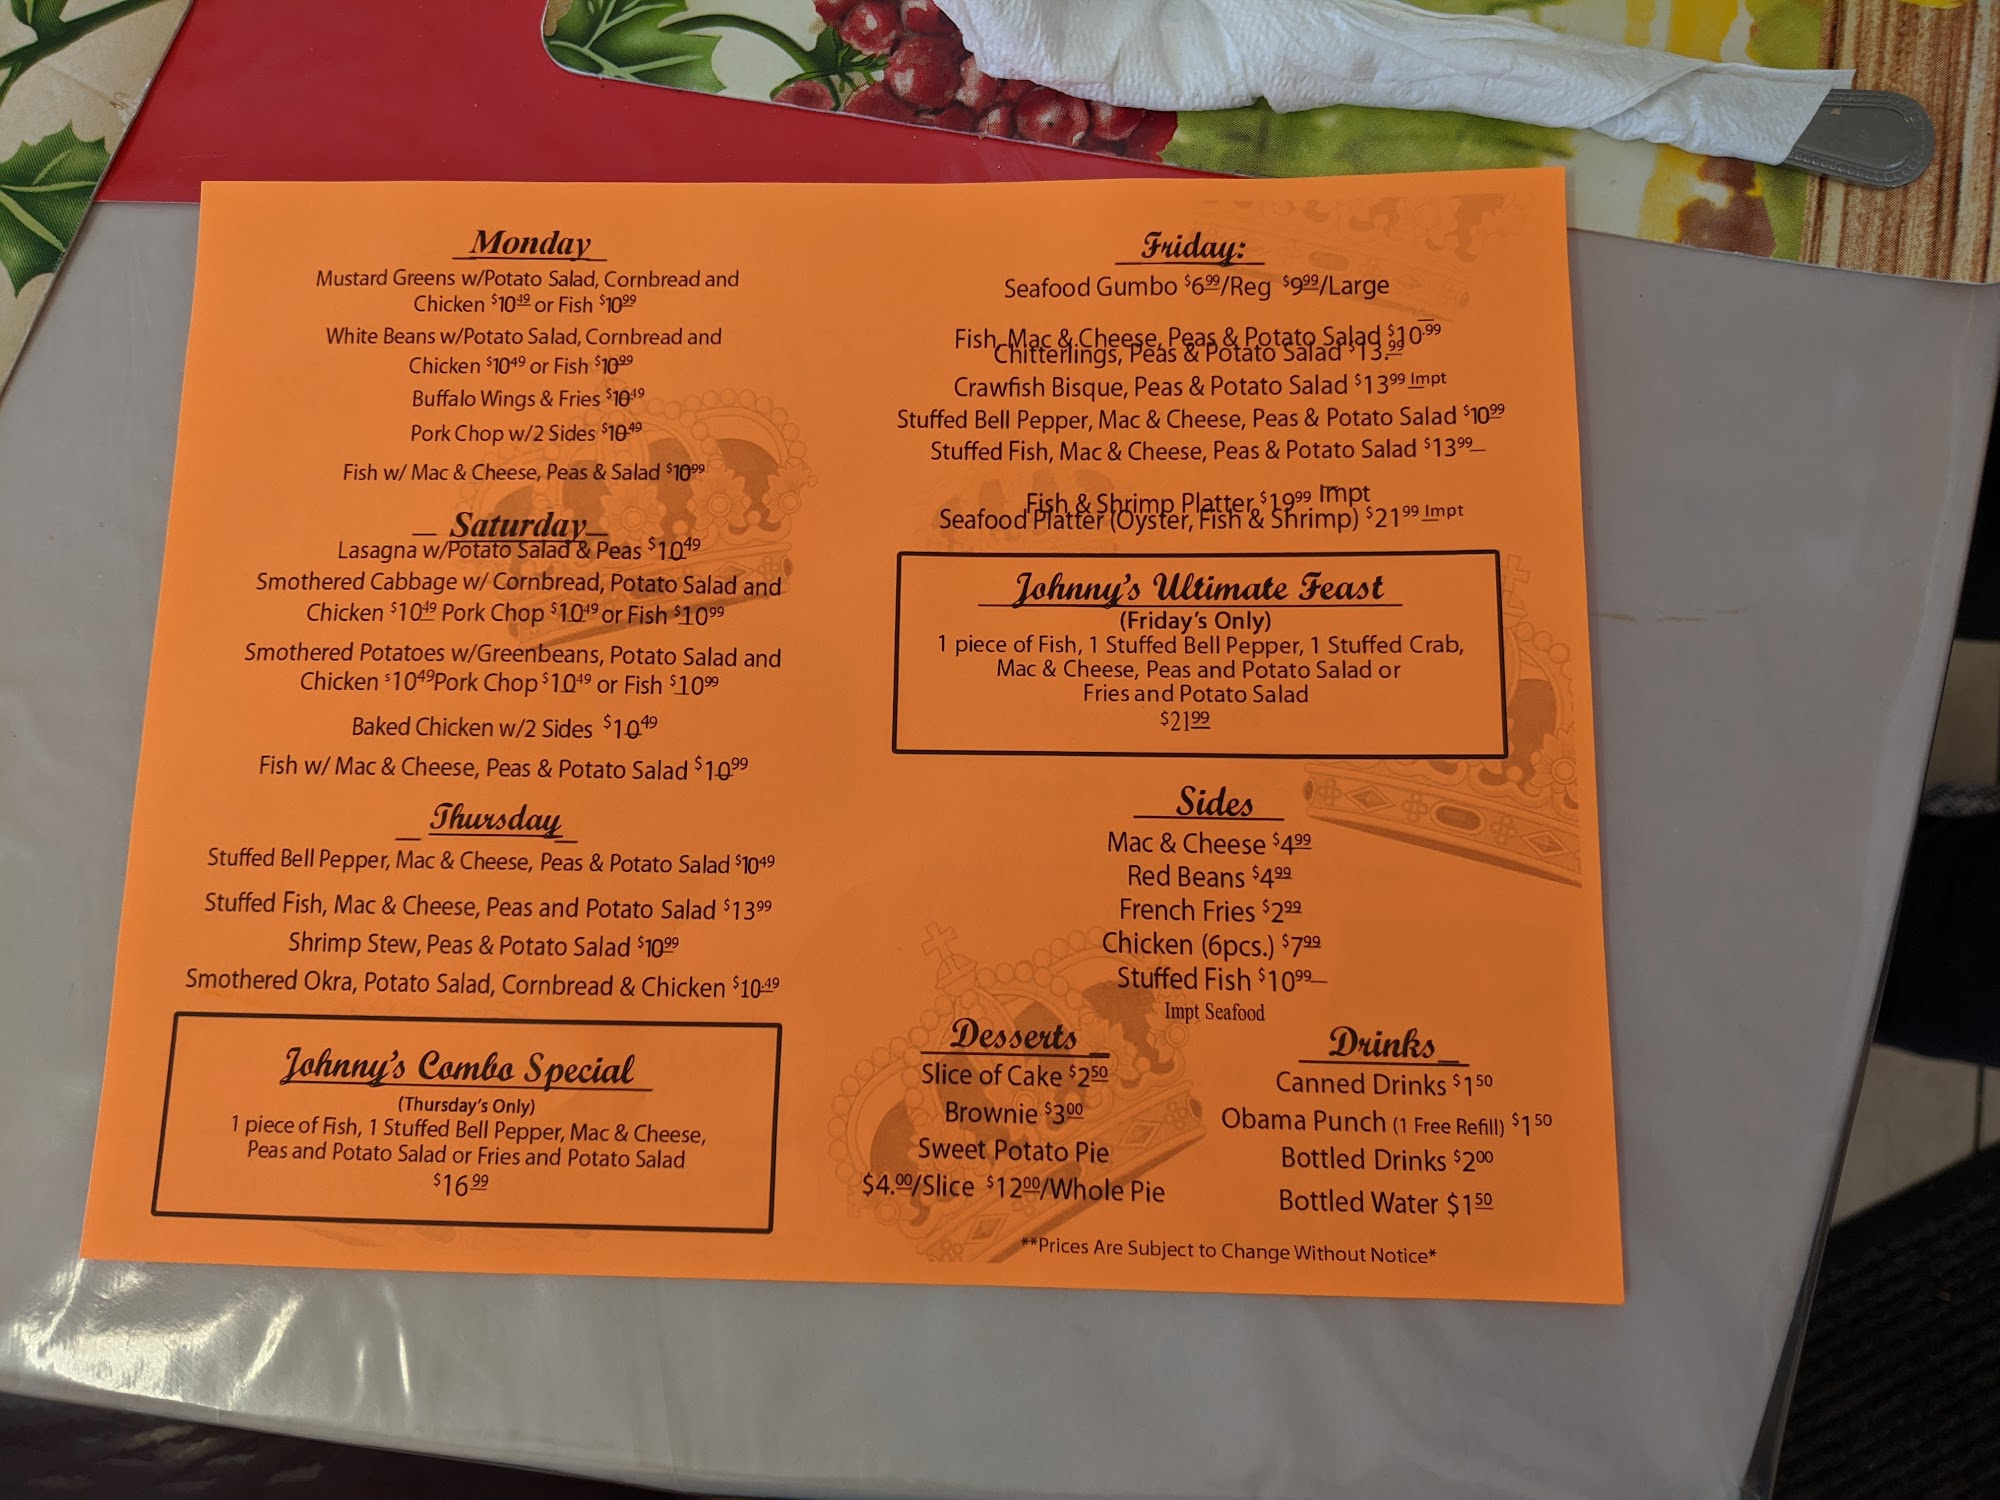 Monday
Mustard Greens w/Potato Salad, Cornbread and
Chicken $10.49 or Fish $10.99
White Beans w/Potato Salad, Cornbread and
Chicken $10.49 or Fish $10.99
Buffalo Wings & Fries $10.49
Pork Chop w/2 Sides $10.49
Fish w/ Mac & Cheese, Peas & Salad $10.99
Saturday
Lasagna w/Potato Salad & Peas $10.49
Smothered Cabbage w/ Cornbread, Potato Salad and
Chicken $10.49 Pork Chop $10.49 or Fish $10.99
Smothered Potatoes w/Greenbeans, Potato Salad and
Chicken $10.49 Pork Chop $10.49 or Fish $10.99
Baked Chicken w/2 Sides $10.49
Fish w/ Mac & Cheese, Peas & Potato Salad $10.99
Thursday
Stuffed Bell Pepper, Mac & Cheese, Peas & Potato Salad $10.49
Stuffed Fish, Mac & Cheese, Peas and Potato Salad $13.99
Shrimp Stew, Peas & Potato Salad $10.99
Smothered Okra, Potato Salad, Cornbread & Chicken $10.49
Johnny's Combo Special
(Thursday's Only)
1 piece of Fish, 1 Stuffed Bell Pepper, Mac & Cheese,
Peas and Potato Salad or Fries and Potato Salad
$16.99
Friday:
Seafood Gumbo $6.99/Reg $9.99/Large
Fish, Mac & Cheese, Peas & Potato Salad $10.99
Chitterlings, Peas & Potato Salad $13.99
Crawfish Bisque, Peas & Potato Salad $13.99 Impt
Stuffed Bell Pepper, Mac & Cheese, Peas & Potato Salad $10.99
Stuffed Fish, Mac & Cheese, Peas & Potato Salad $13.99
Fish & Shrimp Platter $19.99 Impt
Seafood Platter (Oyster, Fish & Shrimp) $21.99 Impt
Johnny's Ultimate Feast
(Friday's Only)
1 piece of Fish, 1 Stuffed Bell Pepper, 1 Stuffed Crab,
Mac & Cheese, Peas and Potato Salad or
Fries and Potato Salad
$21.99
Sides
Mac & Cheese $4.99
Red Beans $4.99
French Fries $2.99
Chicken (6pcs.) $7.99
Stuffed Fish $10.99
Impt Seafood
Desserts
Slice of Cake $2.50
Brownie $3.00
Sweet Potato Pie
$4.00/Slice $12.00/Whole Pie
Drinks
Canned Drinks $1.50
Obama Punch (1 Free Refill) $1.50
Bottled Drinks $2.00
Bottled Water $1.50
**Prices Are Subject to Change Without Notice*